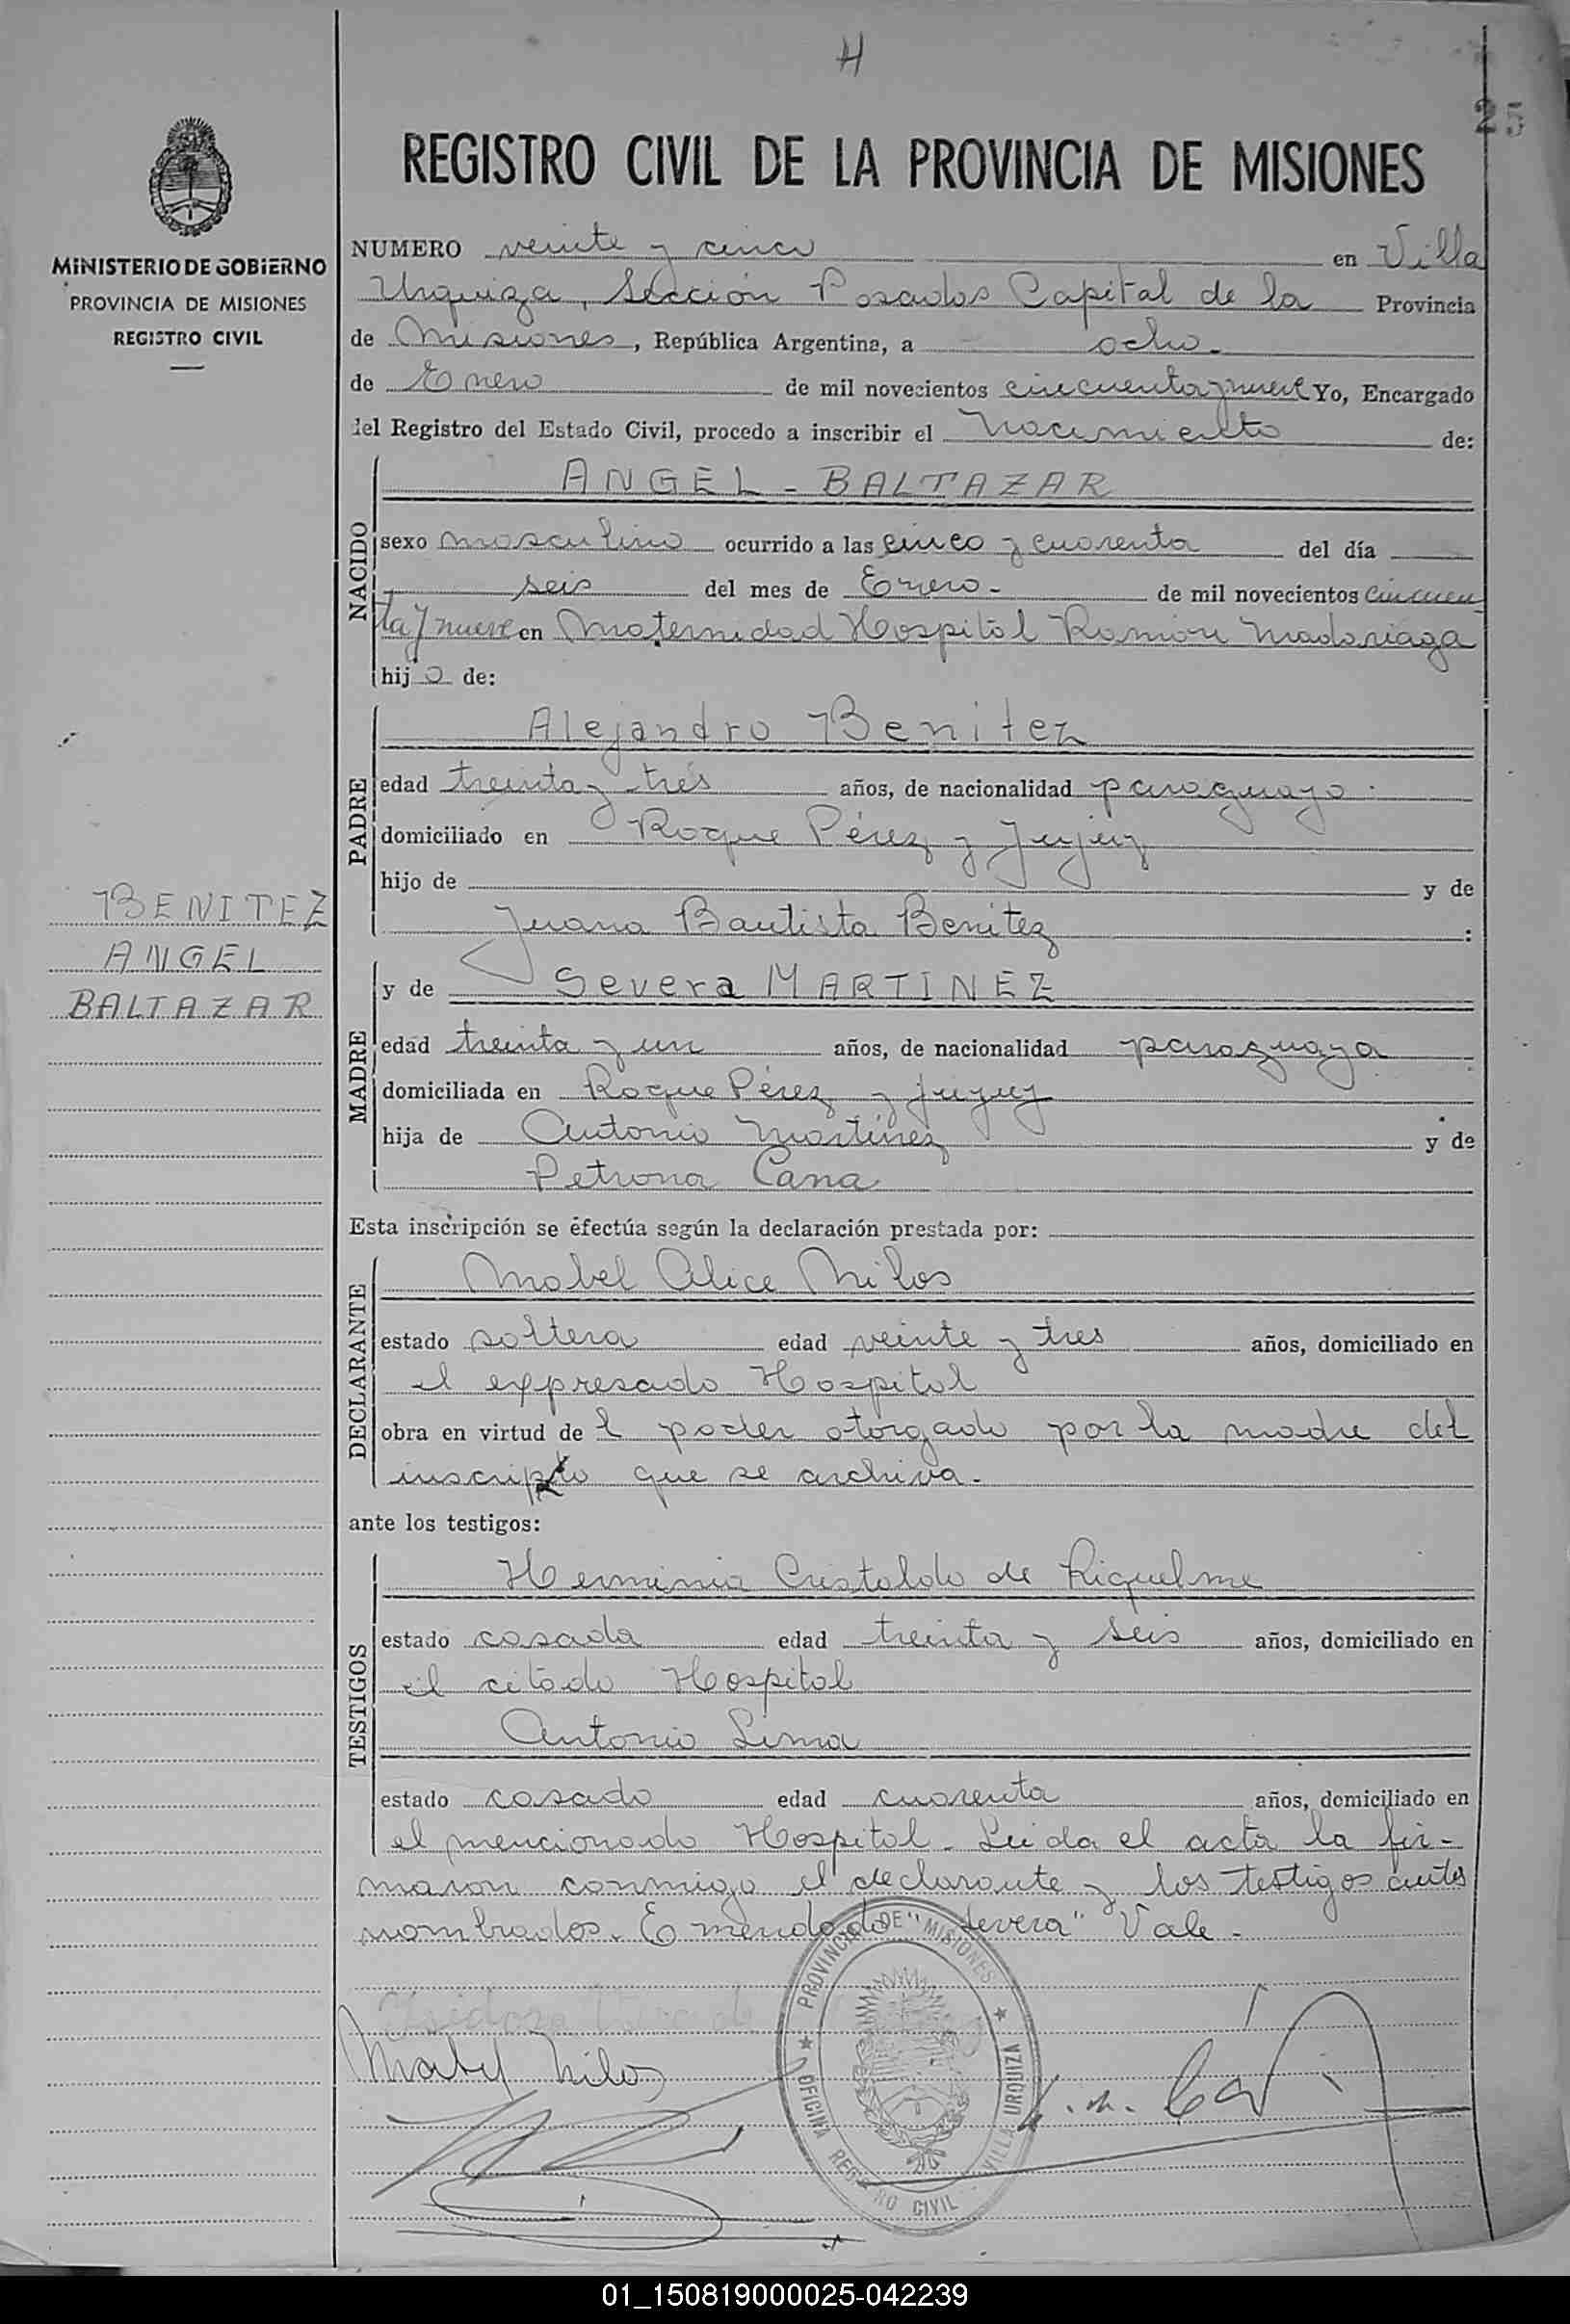 H
25
MINISTERIO DE GOBIERNO
PROVINCIA DE MISIONES
REGISTRO CIVIL
BENITEZ
ANGEL
BALTAZAR
REGISTRO CIVIL DE LA PROVINCIA DE MISIONES
NUMERO veinte y cinco en Villa
Urquiza, Sección Posadas Capital de la Provincia
de Misiones, República Argentina, a ocho.
de Enero de mil novecientos cincuenta y nueve Yo, Encargado
del Registro del Estado Civil, procedo a inscribir el nacimiento de:
NACIDO
ANGEL - BALTAZAR
sexo masculino ocurrido a las cinco y cuarenta del día
seis del mes de Enero- de mil novecientos cincuen
ta y nueve en Maternidad Hospital Ramón Madariaga
hijo de:
PADRE
Alejandro Benitez
edad treinta y tres años, de nacionalidad paraguayo.
domiciliado en Roque Pérez y Jujuy
hijo de y de
Juana Bautista Benitez :
MADRE
y de Severa MARTINEZ
edad treinta y un años, de nacionalidad paraguaya
domiciliada en Roque Pérez y Jujuy
hija de Antonio Martinez y de
Petrona Cana
Esta inscripción se efectúa según la declaración prestada por:
DECLARANTE
Mabel Alice Milos
estado soltera edad veinte y tres años, domiciliado en
el expresado Hospital
obra en virtud de l poder otorgado por la madre del
inscripto que se archiva.-
ante los testigos:
TESTIGOS
Herminia Cristaldo de Riquelme
estado casada edad treinta y seis años, domiciliado en
el citado Hospital
Antonio Lima
estado casado edad cuarenta años, domiciliado en
el mencionado Hospital. Leida el acta la fir-
maron conmigo el declarante y los testigos antes
nombrados. Emendado "Severa" Vale.-
PROVINCIA DE MISIONES
OFICINA REGISTRO CIVIL - VILLA URQUIZA
Maby Milos
01_150819000025-042239